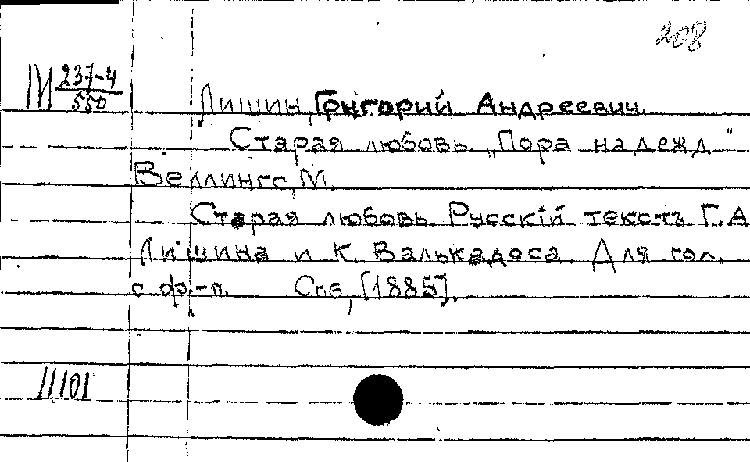 208
М 237-4/550
Лишин, Григорий Андреевич.
Старая любовь. „Пора надежд"
Веллингс, М.
Старая любовь. Русскій текстъ Г.А.
Лишина и К. Валькадоса. Для гол.
с ф.-п. Спб, [1885].
11101